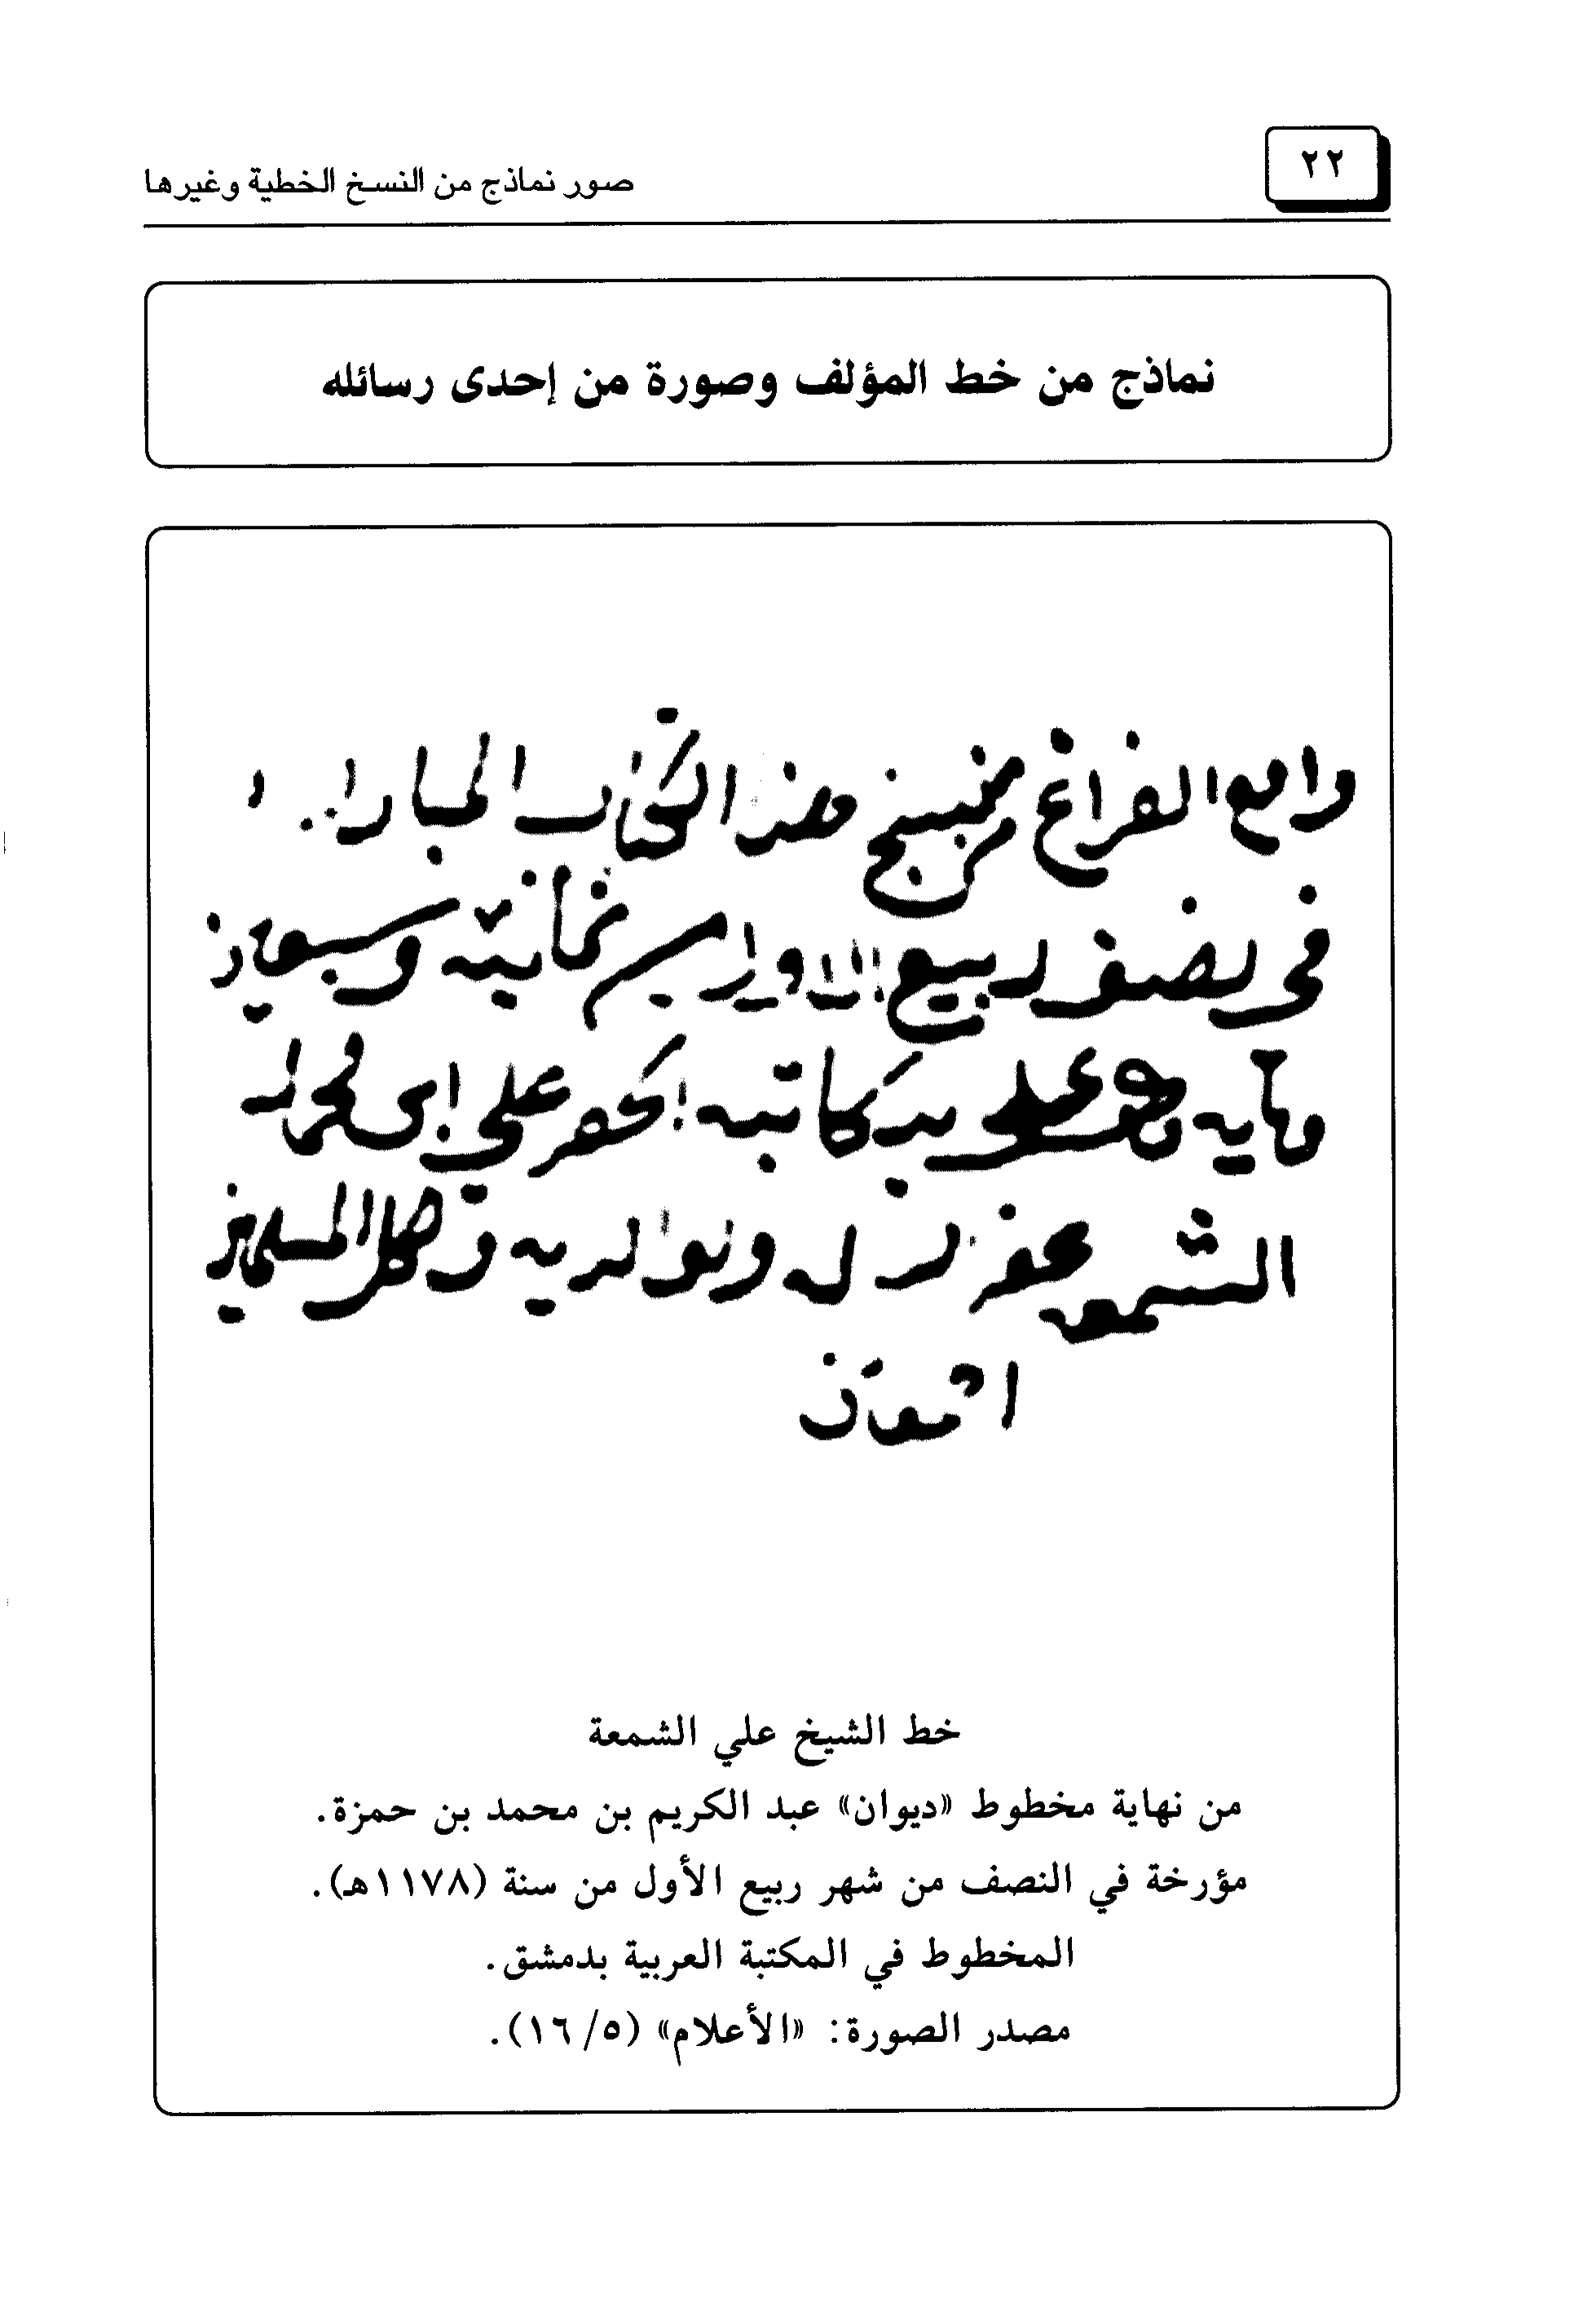 ٢٢
صور نماذج من النسخ الخطية وغيرها
نماذج من خط المؤلف وصورة من إحدى رسائله
الفراغ من نسخ هذا الكتاب المبارك
في نصف ربيع الاول سنه ثمانيه وسبعين
ومايه على يد كاتبه علي ابن
الشمعه غفر له ولوالديه وكل المسلمين
اجمعين
خط الشيخ علي الشمعة
من نهاية مخطوط «ديوان» عبد الكريم بن محمد بن حمزة.
مؤرخة في النصف من شهر ربيع الأول من سنة (١١٧٨هـ).
المخطوط في المكتبة العربية بدمشق.
مصدر الصورة: «الأعلام» (١٦/٥).